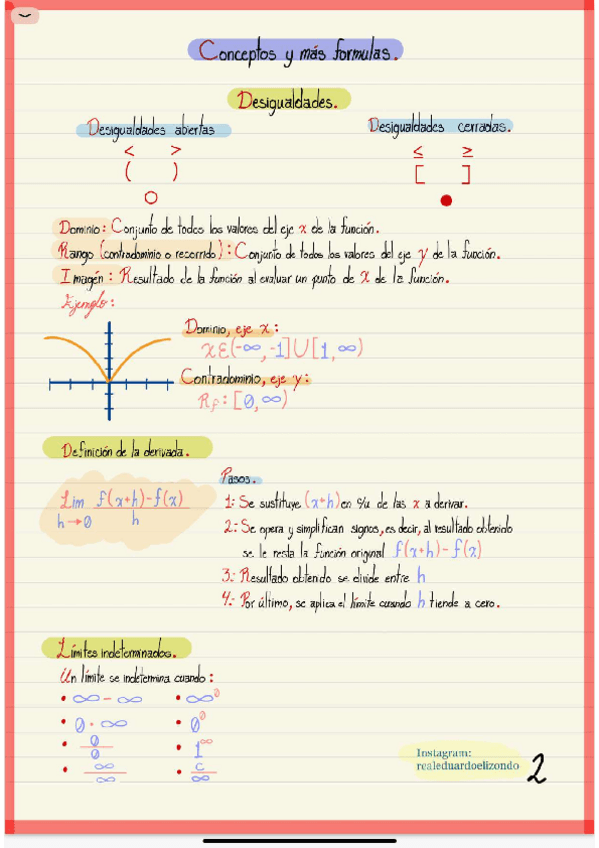 Conceptos y más formulas.
Desigualdades.
Desigualdades abiertas
Desigualdades cerradas.
< >
≤ ≥
( )
[ ]
Dominio: Conjunto de todos los valores del eje x de la función.
Rango (contradominio o recorrido): Conjunto de todos los valores del eje y de la función.
Imagén: Resultado de la función al evaluar un punto de x de la función.
Ejemplo:
Dominio, eje x:
x∈(-∞,-1]∪[1,∞)
Contradominio, eje y:
Rf: [0,∞)
Definición de la derivada.
Lim f(x+h)-f(x)
h→0 h
Pasos.
1: Se sustituye (x+h) en c/u de las x a derivar.
2: Se opera y simplifican signos, es decir, al resultado obtenido
se le resta la función original f(x+h)-f(x)
3: Resultado obtenido se divide entre h
4: Por último, se aplica el límite cuando h tiende a cero.
Límites indeterminados.
Un límite se indetermina cuando:
• ∞-∞ • ∞⁰
• 0·∞ • 0⁰
• 0/0 • 1^∞
• ∞/∞ • c/∞
Instagram:
realeduardoelizondo
2